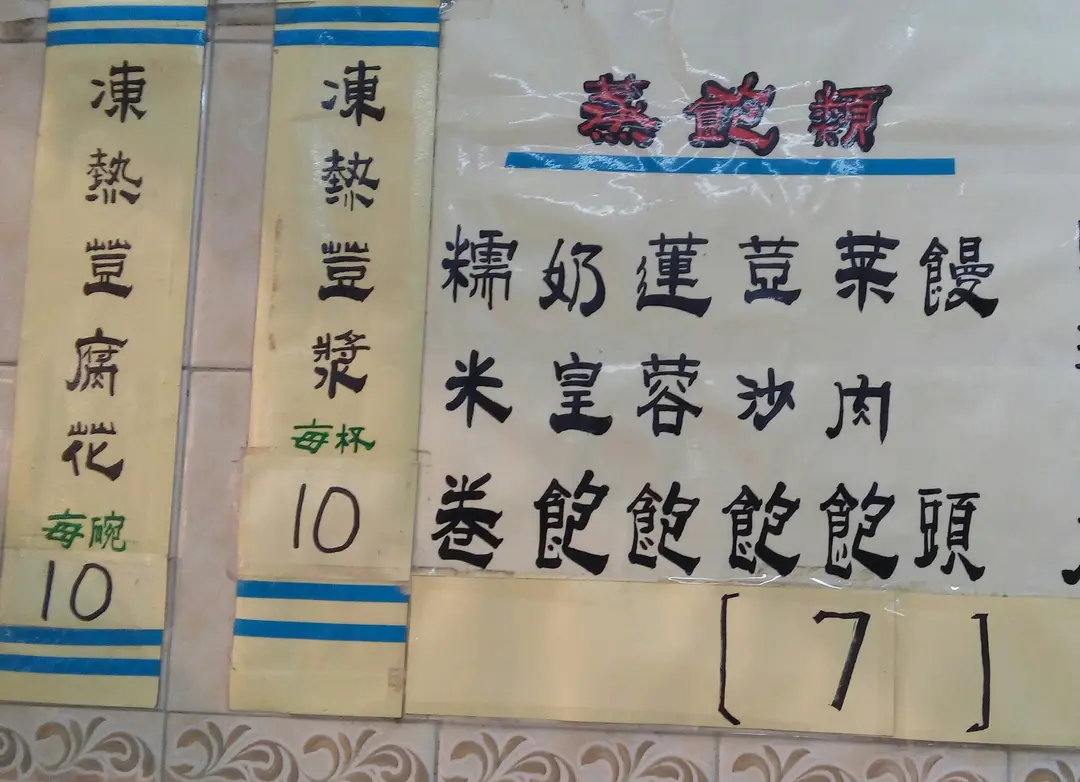 蒸飽類
饅頭
菜肉飽
荳沙飽
蓮蓉飽
奶皇飽
糯米卷
[7]
凍熱荳漿
每杯
10
凍熱荳腐花
每碗
10